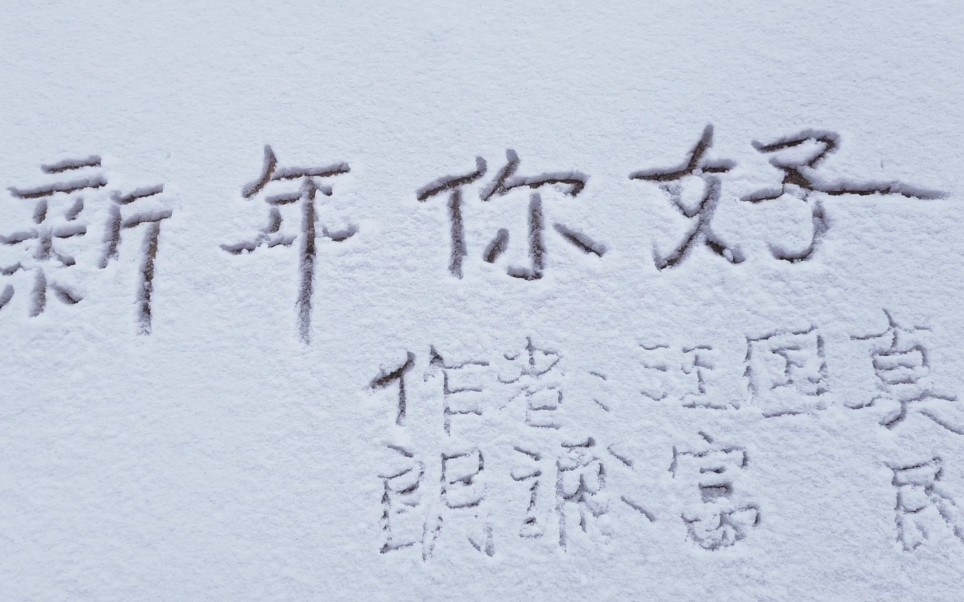 新年你好
作者、汪国真
朗诵、富民